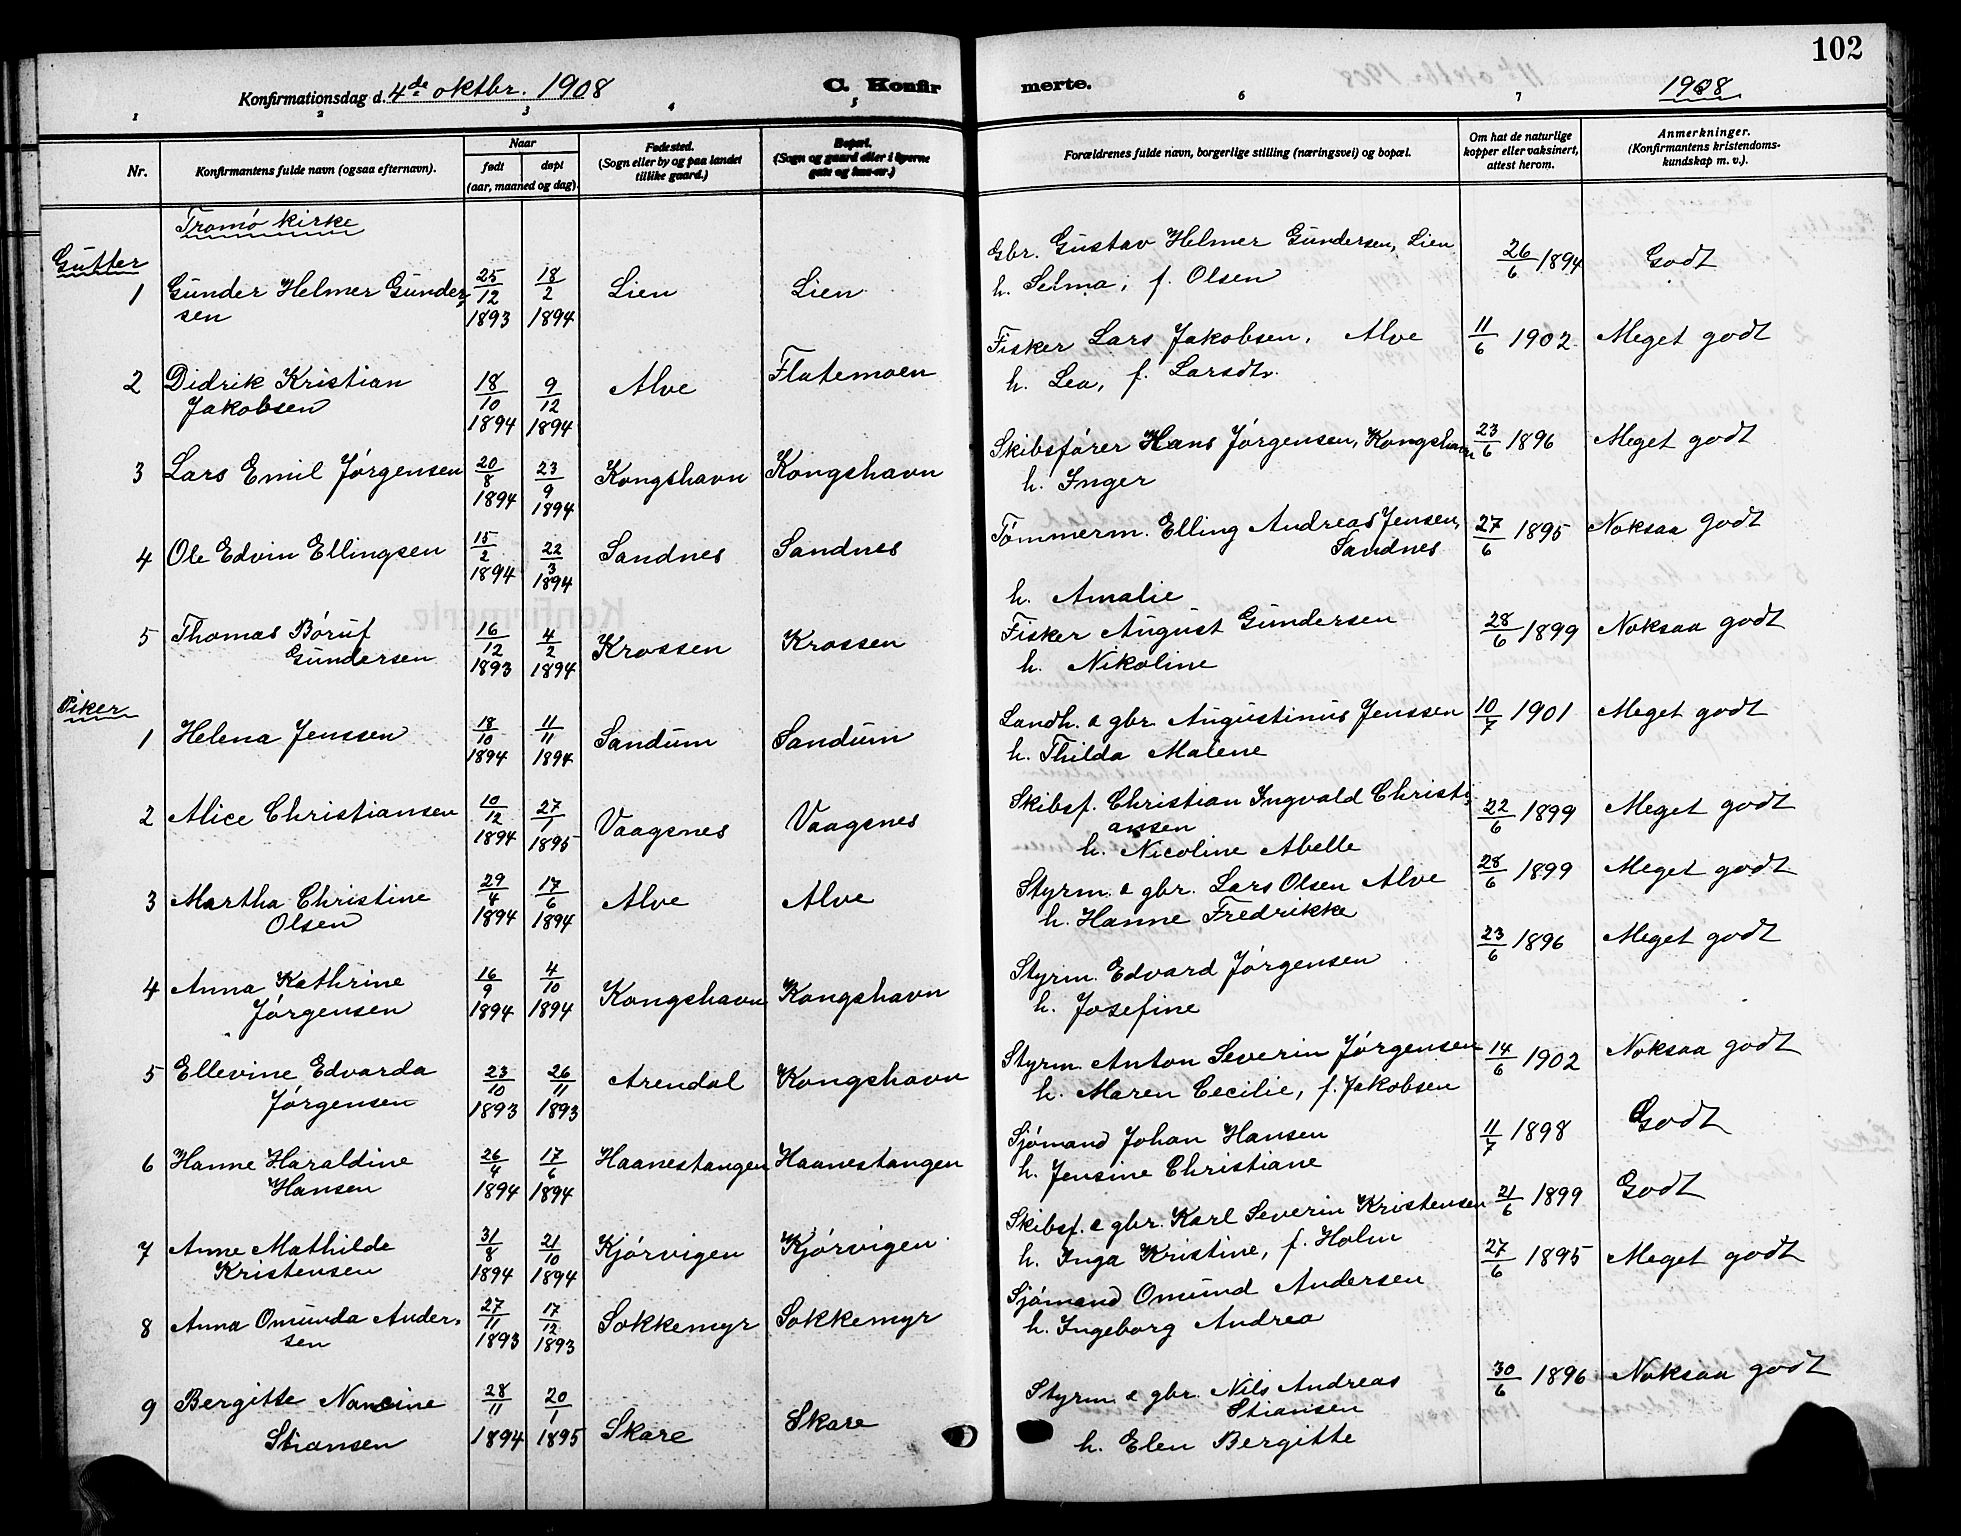 102
Konfirmationsdag d. 4de oktbr. 1908
C. Konfirmerte.
1908
1 2 3 4 5 6 7
Nr.
Konfirmantens fulde navn (ogsaa efternavn).
Naar
født døpt
(aar, maaned og dag)
Fødested.
(Sogn eller by og paa landet
tillike gaard.)
Bopæl.
(Sogn og gaard eller i byerne
gate og hus-nr.)
Forældrenes fulde navn, borgerlige stilling (næringsvei) og bopæl.
Om hat de naturlige
kopper eller vaksinert,
attest herom.
Anmerkninger.
(Konfirmantens kristendoms-
kundskap m. v.).
Tromø kirke
Gutter
1 Gunder Helmer Gunder- 25/12 18/2 Lien Lien Gbr. Gustav Helmer Gundersen, Lien 26/6 1894 Godt
sen 1893 1894 h. Selma, f. Olsen
2 Didrik Kristian 18/10 9/12 Alve Flatemoen Fisker Lars Jakobsen, Alve 11/6 1902 Meget godt
Jakobsen 1894 1894 h. Lea, f. Larsdtr.
3 Lars Emil Jørgensen 20/8 23/9 Kongshavn Kongshavn Skibsfører Hans Jørgensen, Kongshavn 23/6 1896 Meget godt
1894 1894 h. Inger
4 Ole Edvin Ellingsen 15/2 22/3 Sandnes Sandnes Tømmerm. Elling Andreas Jensen, 27/6 1895 Noksaa godt
1894 1894 Sandnes
h. Amalie
5 Thomas Børuf 16/12 4/2 Krossen Krossen Fisker August Gundersen 28/6 1899 Noksaa godt
Gundersen 1893 1894 h. Nikoline
Piker
1 Helena Jenssen 18/10 11/11 Sandum Sandum Landh. & gbr. Augustinus Jenssen 10/7 1901 Meget godt
1894 1894 h. Thilda Malene
2 Alice Christiansen 10/12 27/1 Vaagsnes Vaagsnes Skibsf. Christian Ingvald Christi- 22/6 1899 Meget godt
1894 1895 ansen
h. Nicoline Abelle
3 Martha Christine 29/4 17/6 Alve Alve Styrm. & gbr. Lars Olsen Alve 28/6 1899 Meget godt
Olsen 1894 1894 h. Hanne Fredrikke
4 Anna Kathrine 16/9 4/10 Kongshavn Kongshavn Styrm. Edvard Jørgensen 23/6 1896 Meget godt
Jørgensen 1894 1894 h. Josefine
5 Ellevine Edvarda 23/10 26/11 Arendal Kongshavn Styrm. Anton Severin Jørgensen 14/6 1902 Noksaa godt
Jørgensen 1893 1893 h. Maren Cecilie, f. Jakobsen
6 Hanne Haraldine 26/4 17/6 Haanestangen Haanestangen Sjømand Johan Hansen 11/7 1898 Godt
Hansen 1894 1894 h. Jensine Christiane
7 Anne Mathilde 31/8 21/10 Kjørvigen Kjørvigen Skibsf. & gbr. Karl Severin Kristensen 21/6 1899 Godt
Kristensen 1894 1894 h. Inga Kristine, f. Holm
8 Anna Omunda Ander- 27/11 17/12 Sokkemyr Sokkemyr Sjømand Omund Andersen 27/6 1895 Meget godt
sen 1893 1893 h. Ingeborg Andrea
9 Bergitte Nancine 28/11 20/1 Skare Skare Styrm. & gbr. Nils Andreas 30/6 1896 Noksaa godt
Stiansen 1894 1895 Stiansen
h. Elen Bergitte